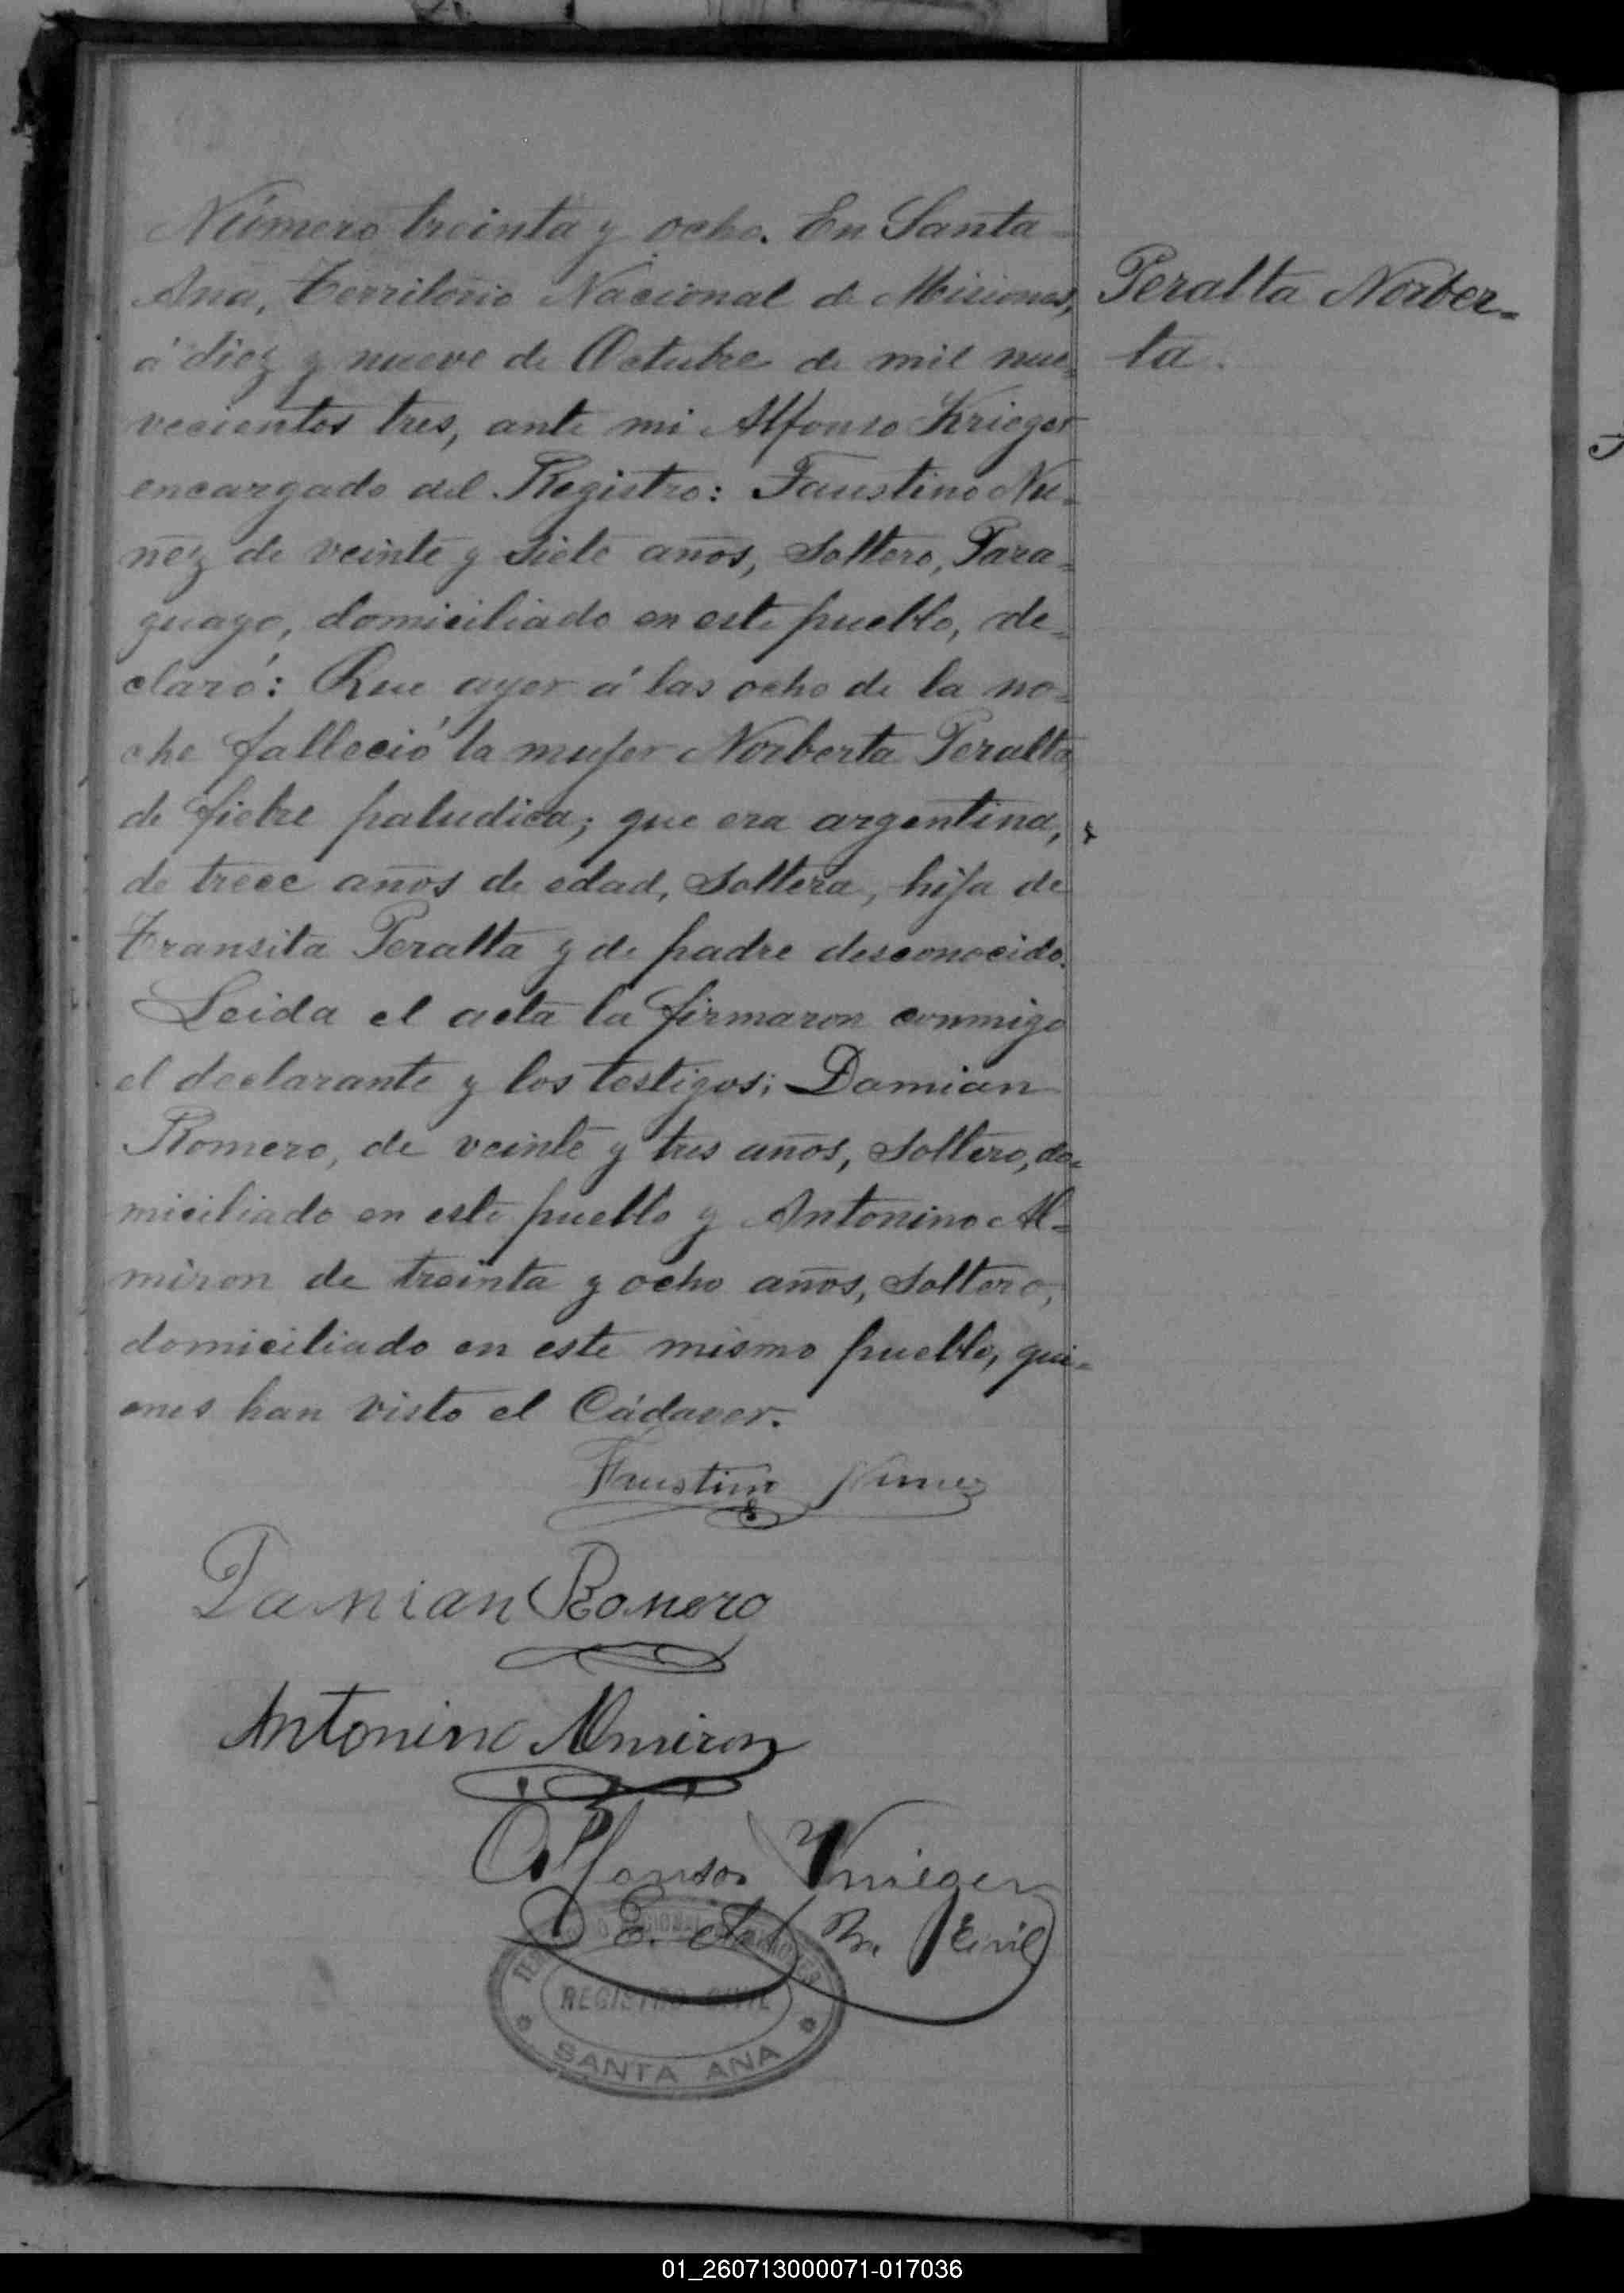 Número treinta y ocho. En Santa
Ana, Territorio Nacional de Misiones,
á diez y nueve de Octubre de mil nue=
vecientos tres, ante mi Alfonso Krieger
encargado del Registro: Faustino Nu=
ñez de veinte y siete años, Soltero, Para=
guayo, domiciliado en este pueblo, de=
claró: Que ayer á las ocho de la no=
che falleció la mujer Norberta Peralta,
de fiebre paludica; que era argentina,
de trece años de edad, Soltera, hija de
Transita Peralta y de padre desconocido.
Leida el acta la firmaron conmigo
el declarante y los testigos; Damian
Romero, de veinte y tres años, Soltero, do=
miciliado en este pueblo y Antonino Al=
miron de treinta y ocho años, Soltero,
domiciliado en este mismo pueblo, qui=
enes han visto el Cádaver.
Peralta Norber=
ta.
Faustino Nunez
Damian Romero
Antonino Almiron
Alfonso Krieger
E. del R. Civil
REGISTRO CIVIL
SANTA ANA
01_260713000071-017036